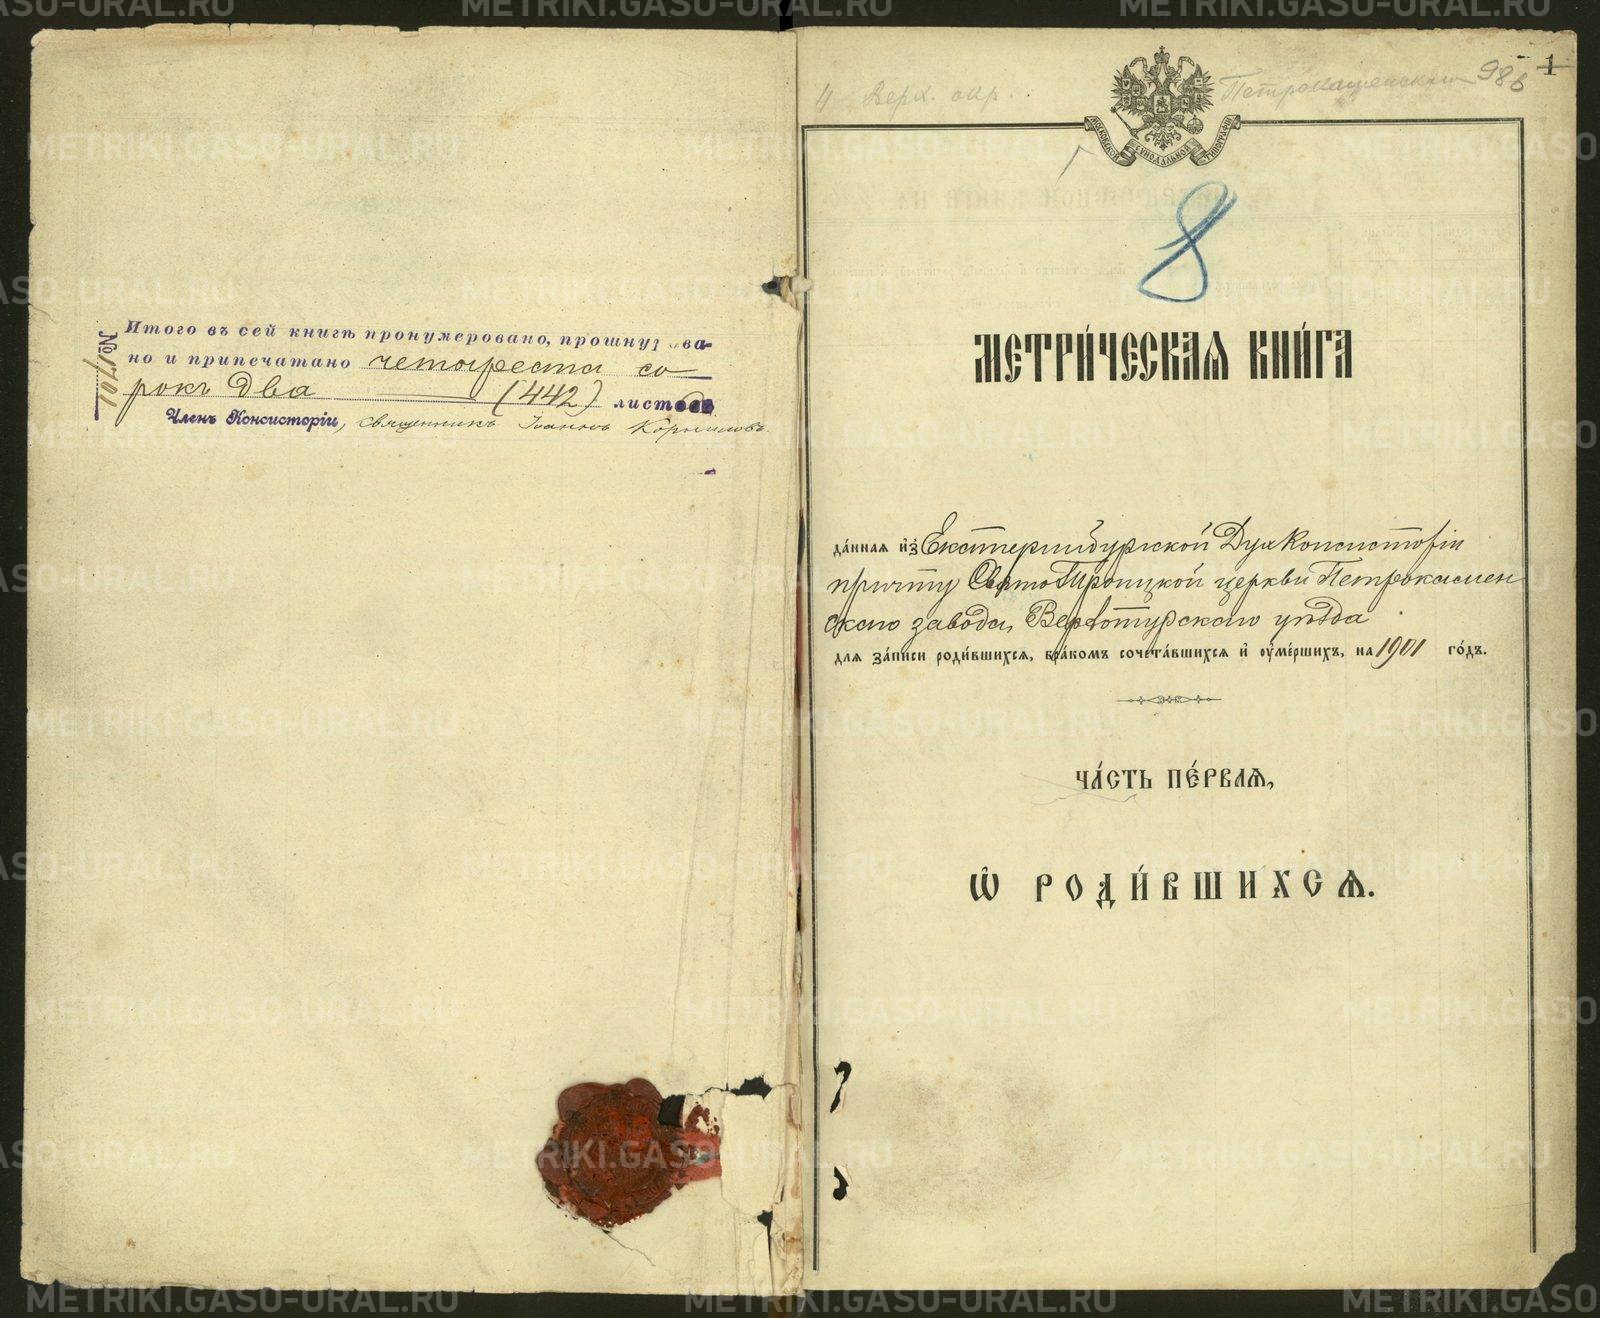 № 1701
Итого въ сей книгѣ пронумеровано, прошнурова-
но и припечатано четыреста со
рокъ два (442) листовъ
Членъ Консисторіи, священникъ Іоаннъ Корниловъ.
4 Верх. окр.
Петрокаменский 98б
1
МОСКОВСКОЙ СѴНОДАЛЬНОЙ ТИПОГРАФІИ
8
МЕТРИ́ЧЕСКАѦ КНИ́ГА
да́нная и҆з̾ Екатеринбургской Дух Консисторіи
причту СвятоТроицкой церкви Петрокамен
скаго завода, Верхотурскаго уѣзда
для за́писи роди́вшихсѧ, бра́комъ сочета́вшихсѧ и҆ ѹ҆ме́ршихъ, на 1901 го́дъ.
ЧА́СТЬ ПЕ́РВАѦ,
Ѽ РОДИ́ВШИХСѦ.
METRIKI.GASO-URAL.RU